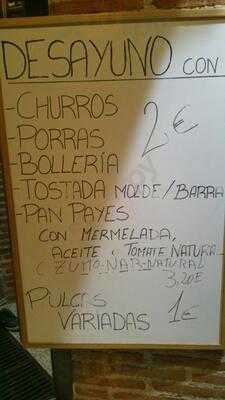 DESAYUNO CON
-CHURROS
-PORRAS 2€
-BOLLERÍA
-TOSTADA MOLDE/BARRA
-PAN PAYES
CON MERMELADA,
ACEITE Y TOMATE NATURA
(ZUMO NAR-NATURAL
3.20€
PULGAS 1€
VARIADAS